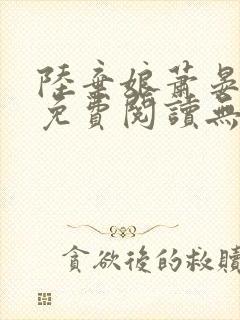 陸棄娘蕭晏
免費閱讀無
貪欲後的救贖